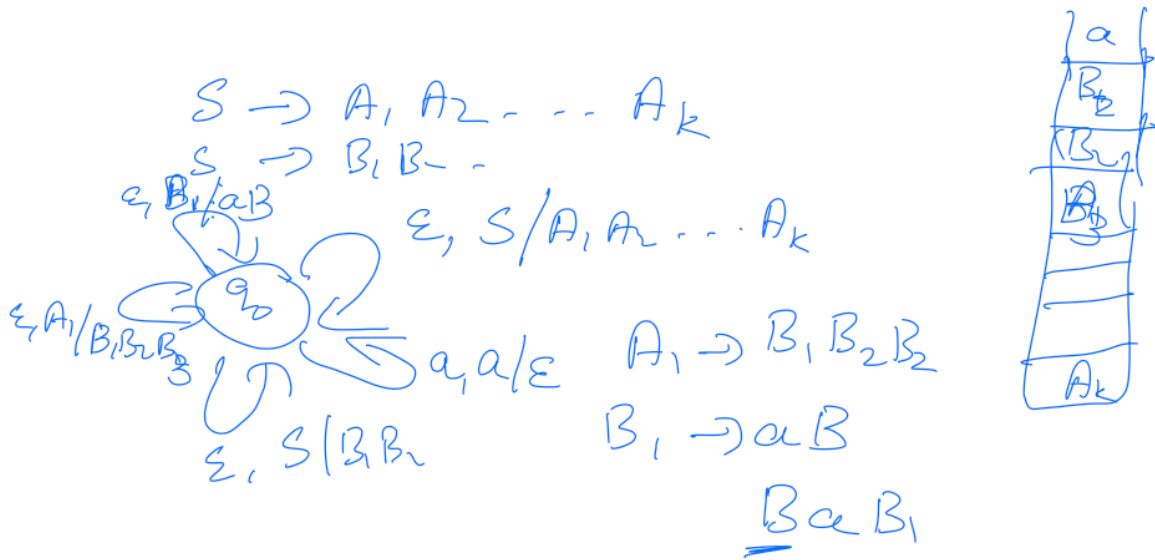 S → A₁ A₂ - - - - A_k
S → B₁ B₂ -
ε, B₁/aB
ε, S/A₁ A₂ - - - - A_k
q₀
ε, A₁/B₁B₂B₃
a, a/ε
A₁ → B₁ B₂ B₂
ε, S/B₁B₂
B₁ → aB
B a B₁
a
B₂
A_k